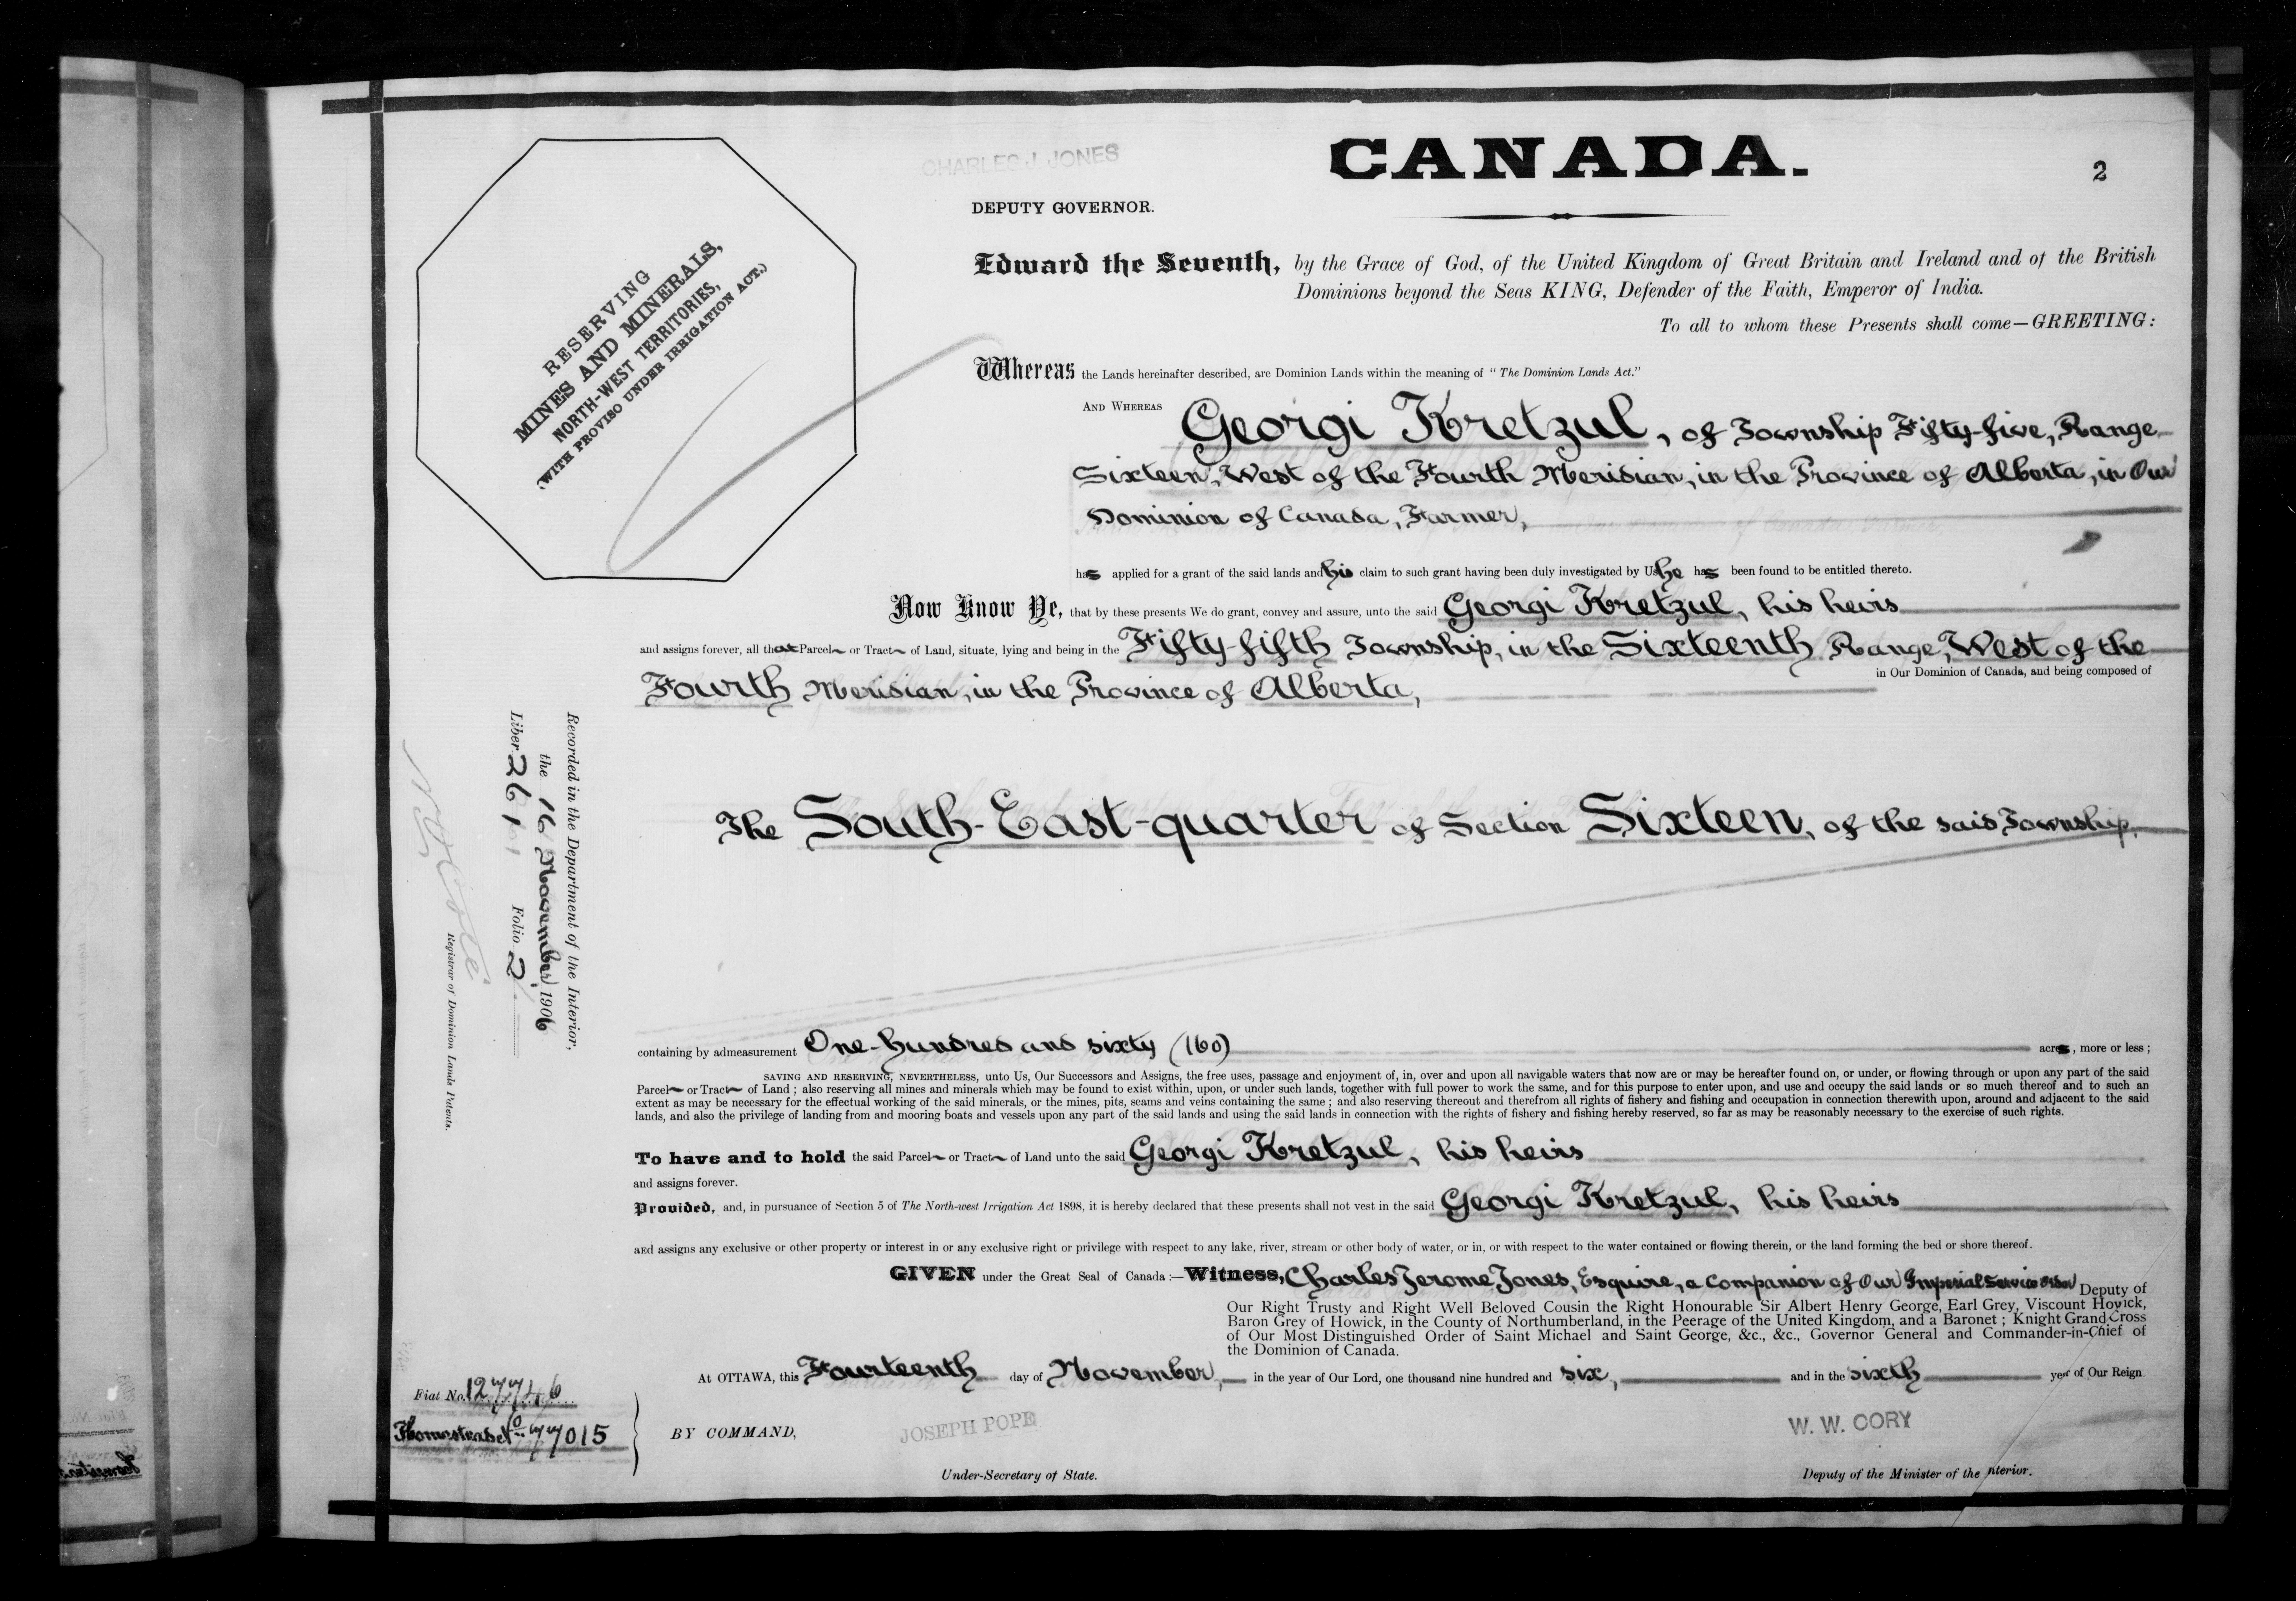 CHARLES J. JONES
CANADA.
2
DEPUTY GOVERNOR.
RESERVING
MINES AND MINERALS,
NORTH-WEST TERRITORIES,
(WITH PROVISO UNDER IRRIGATION ACT.)
Edward the Seventh, by the Grace of God, of the United Kingdom of Great Britain and Ireland and of the British
Dominions beyond the Seas KING, Defender of the Faith, Emperor of India.
To all to whom these Presents shall come—GREETING:
Whereas the Lands hereinafter described, are Dominion Lands within the meaning of "The Dominion Lands Act."
AND WHEREAS Georgi Kretzul, of Township Fifty-five, Range
Sixteen, West of the Fourth Meridian, in the Province of Alberta, in Our
Dominion of Canada, Farmer,
has applied for a grant of the said lands and his claim to such grant having been duly investigated by Us he has been found to be entitled thereto.
Now Know Ye, that by these presents We do grant, convey and assure, unto the said Georgi Kretzul, his heirs
and assigns forever, all that Parcel or Tract of Land, situate, lying and being in the Fifty-fifth Township, in the Sixteenth Range, West of the
Fourth Meridian, in the Province of Alberta, in Our Dominion of Canada, and being composed of
The South-East-quarter of Section Sixteen, of the said Township,
containing by admeasurement One-hundred and sixty (160) acres, more or less;
SAVING AND RESERVING, NEVERTHELESS, unto Us, Our Successors and Assigns, the free uses, passage and enjoyment of, in, over and upon all navigable waters that now are or may be hereafter found on, or under, or flowing through or upon any part of the said
Parcel or Tract of Land; also reserving all mines and minerals which may be found to exist within, upon, or under such lands, together with full power to work the same, and for this purpose to enter upon, and use and occupy the said lands or so much thereof and to such an
extent as may be necessary for the effectual working of the said minerals, or the mines, pits, seams and veins containing the same; and also reserving thereout and therefrom all rights of fishery and fishing and occupation in connection therewith upon, around and adjacent to the said
lands, and also the privilege of landing from and mooring boats and vessels upon any part of the said lands and using the said lands in connection with the rights of fishery and fishing hereby reserved, so far as may be reasonably necessary to the exercise of such rights.
To have and to hold the said Parcel or Tract of Land unto the said Georgi Kretzul, his heirs
and assigns forever.
Provided, and, in pursuance of Section 5 of The North-west Irrigation Act 1898, it is hereby declared that these presents shall not vest in the said Georgi Kretzul, his heirs
and assigns any exclusive or other property or interest in or any exclusive right or privilege with respect to any lake, river, stream or other body of water, or in, or with respect to the water contained or flowing therein, or the land forming the bed or shore thereof.
GIVEN under the Great Seal of Canada:—Witness, Charles Jerome Jones, Esquire, a Companion of Our Imperial Service Order Deputy of
Our Right Trusty and Right Well Beloved Cousin the Right Honourable Sir Albert Henry George, Earl Grey, Viscount Howick,
Baron Grey of Howick, in the County of Northumberland, in the Peerage of the United Kingdom, and a Baronet; Knight Grand Cross
of Our Most Distinguished Order of Saint Michael and Saint George, &c., &c., Governor General and Commander-in-Chief of
the Dominion of Canada.
At OTTAWA, this Fourteenth day of November, in the year of Our Lord, one thousand nine hundred and six, and in the sixth year of Our Reign
BY COMMAND,
JOSEPH POPE
Under-Secretary of State.
W. W. CORY
Deputy of the Minister of the Interior.
Fiat No. 127746
Homestead No 77015
Recorded in the Department of the Interior,
the 16 November, 1906
Liber 261 Folio 2.
Registrar of Dominion Lands Patents.